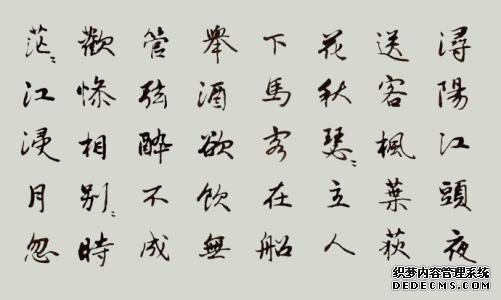 潯陽江頭夜
送客楓葉荻
花秋瑟〻主人
下馬客在船
舉酒欲飲無
管弦醉不成
歡慘相別〻時
茫〻江浸月忽
织梦内容管理系统
DEDECMS.COM